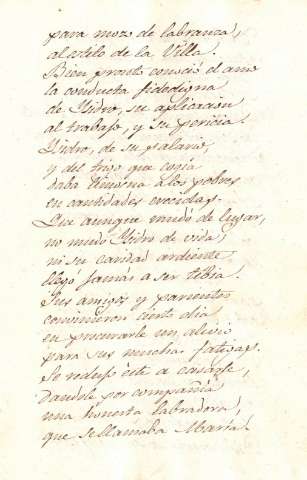 para mozo de labranza,
al estilo de la Villa.
Bien pronto conoció el amo
la conducta fidedigna
de Ysidro, su aplicacion
al trabajo, y su pericia.
Ysidro, de su salario
y del trigo que cogia
daba limosna a los pobres
en cantidades crecidas.
Que aunque mudó de lugar,
no mudó Ysidro de vida,
ni su caridad ardiente
llegó jamás a ser tibia.
Sus amigos y parientes
convinieron cierto dia
en procurarle un alivio
para sus muchas fatigas.
Se redujo éste a casarse,
dandole por compañia
una honesta labradora,
que se llamaba Maria.